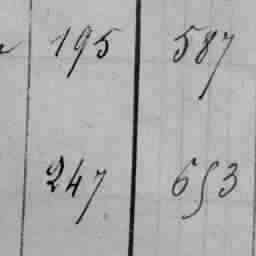 195 587
247 653